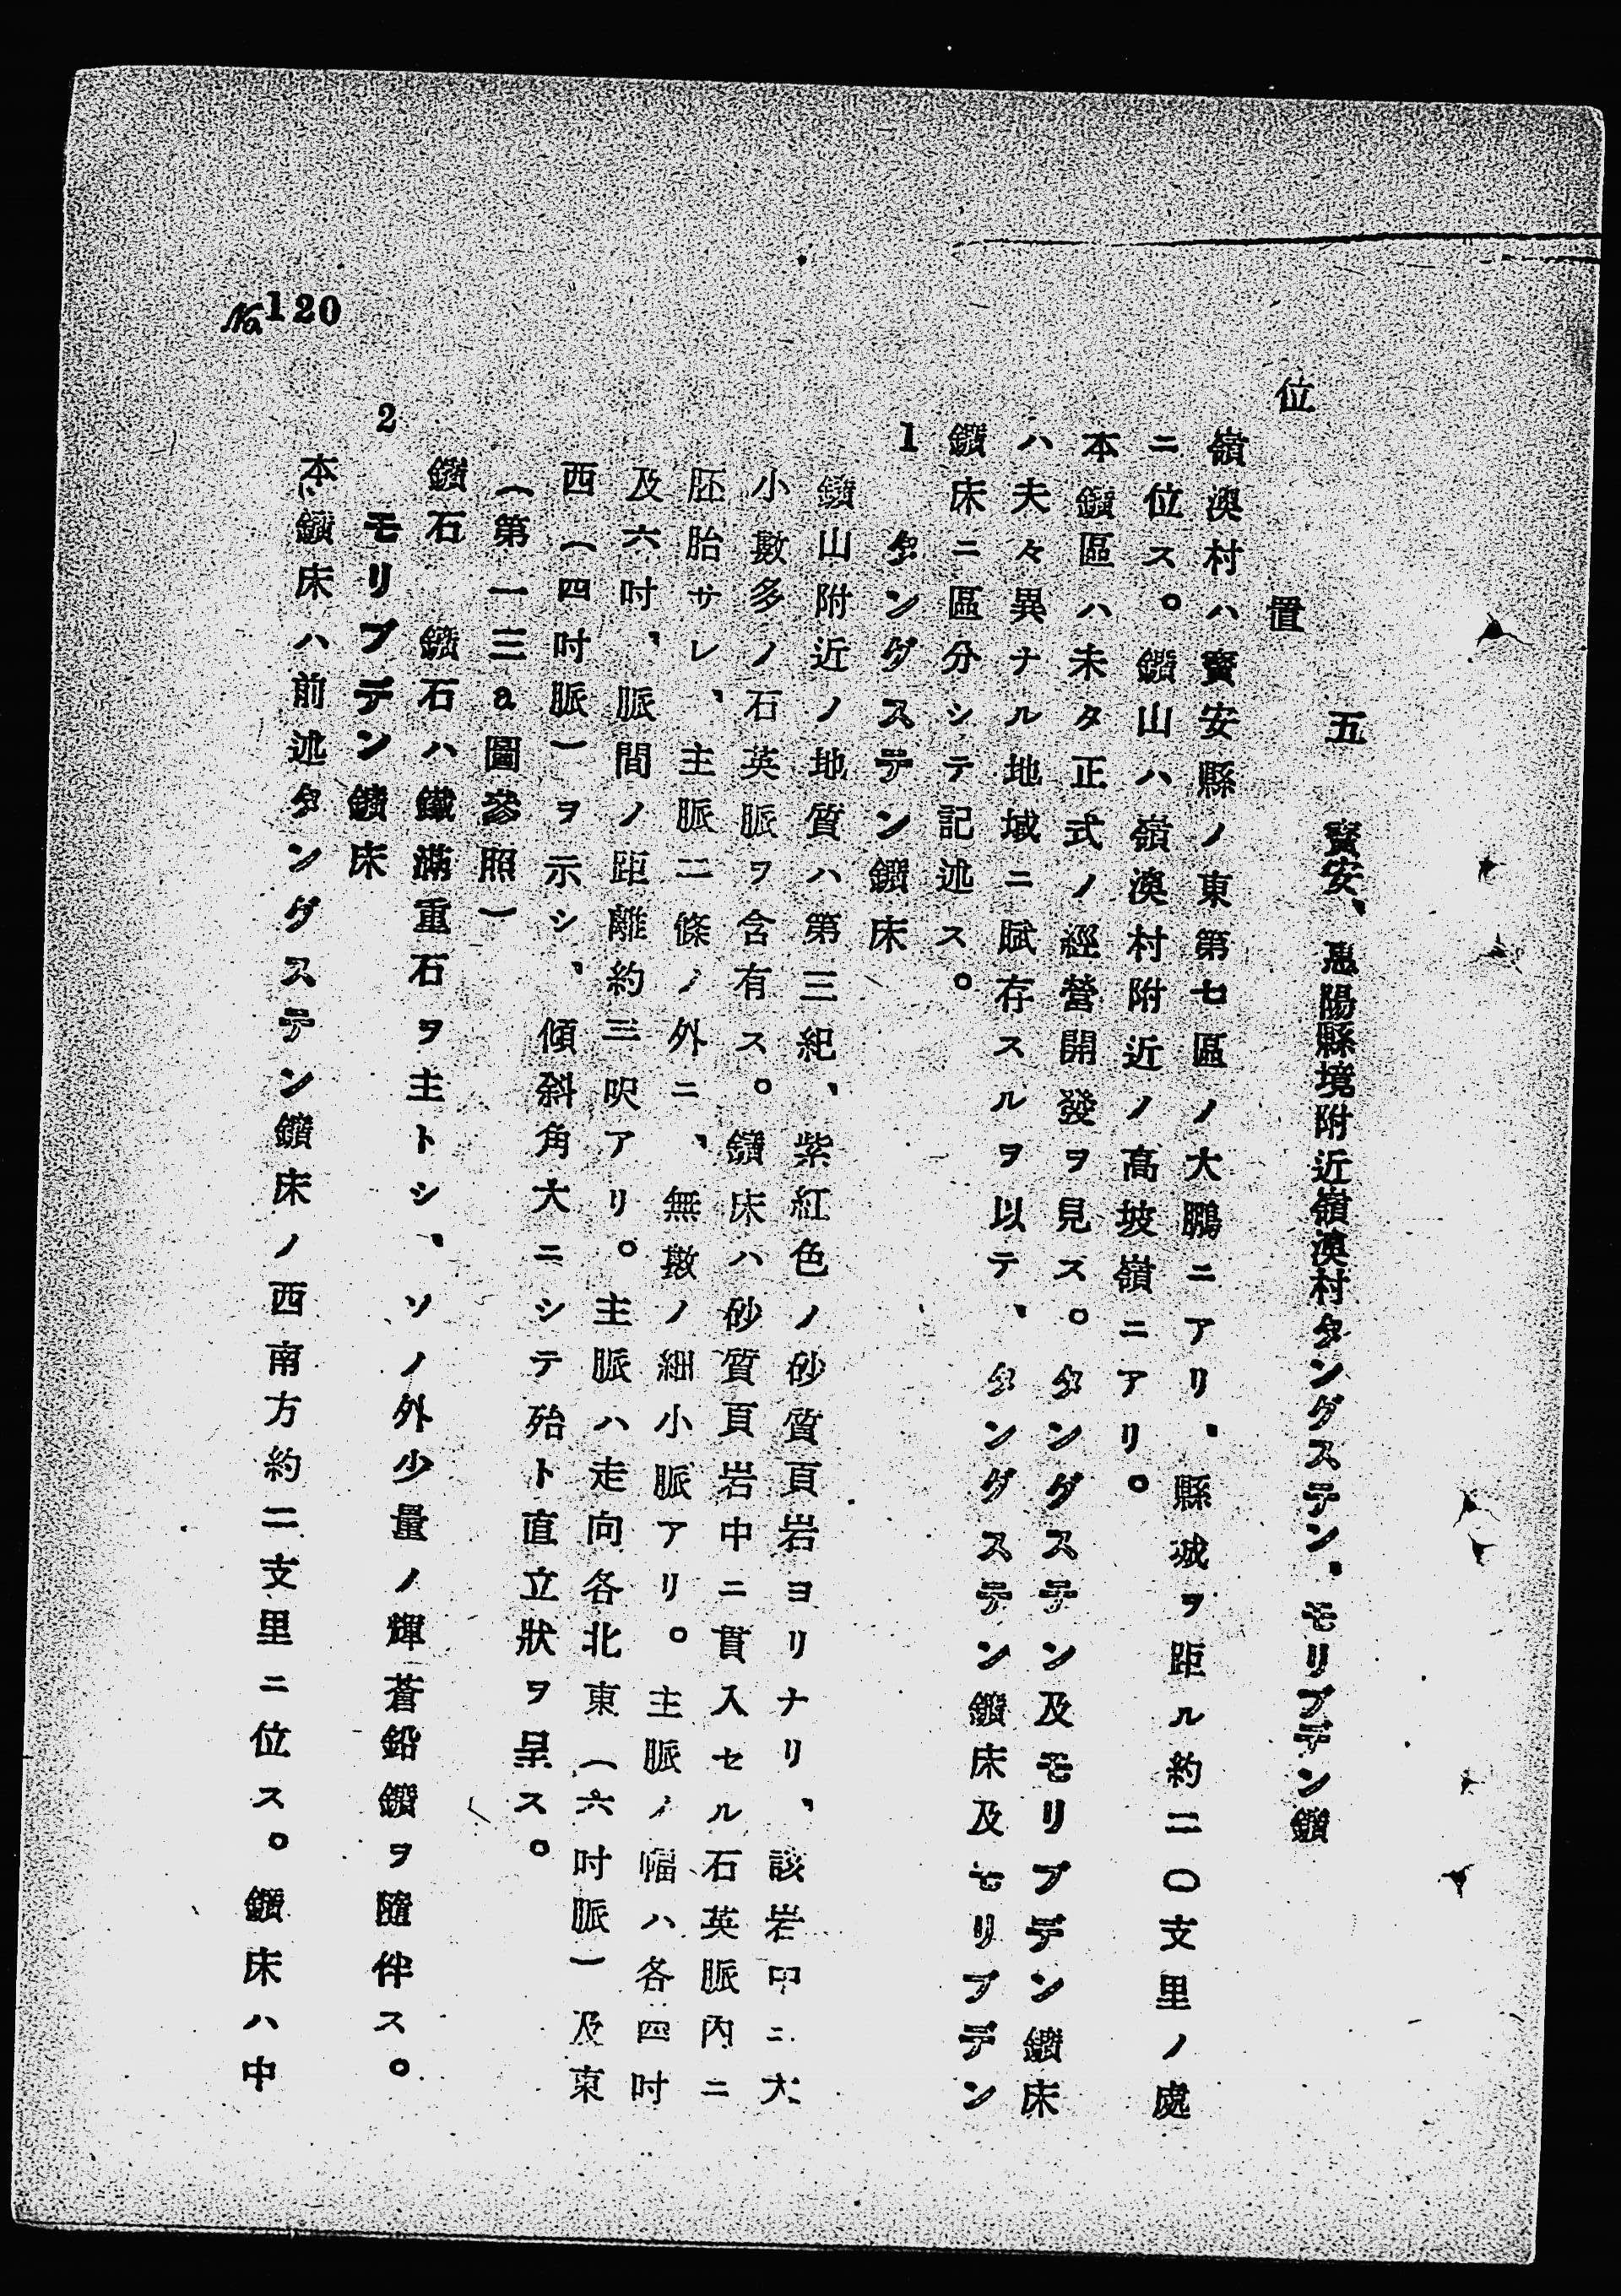 五　寳安、惠陽縣境附近嶺澳村タングステン、モリブデン鑛
位置
嶺澳村ハ寳安縣ノ東第七區ノ大鵬ニアリ、縣城ヲ距ル約二〇支里ノ處
ニ位ス。鑛山ハ嶺澳村附近ノ高坡嶺ニアリ。
本鑛區ハ未タ正式ノ經營開發ヲ見ス。タングステン及モリブデン鑛床
ハ夫々異ナル地域ニ賦存スルヲ以テ、タングステン鑛床及モリブデン
鑛床ニ區分シテ記述ス。
1　タングステン鑛床
鑛山附近ノ地質ハ第三紀、紫紅色ノ砂質頁岩ヨリナリ、該岩中ニ大
小數多ノ石英脈ヲ含有ス。鑛床ハ砂質頁岩中ニ貫入セル石英脈内ニ
胚胎サレ、主脈二條ノ外ニ、無數ノ細小脈アリ。主脈ノ幅ハ各四吋
及六吋、脈間ノ距離約三呎アリ。主脈ハ走向各北東（六吋脈）及東
西（四吋脈）ヲ示シ、傾斜角大ニシテ殆ト直立狀ヲ呈ス。
（第一三a圖參照）
鑛石　鑛石ハ鐵滿重石ヲ主トシ、ソノ外少量ノ輝蒼鉛鑛ヲ隨伴ス。
2　モリブデン鑛床
本鑛床ハ前述タングステン鑛床ノ西南方約二支里ニ位ス。鑛床ハ中
№120